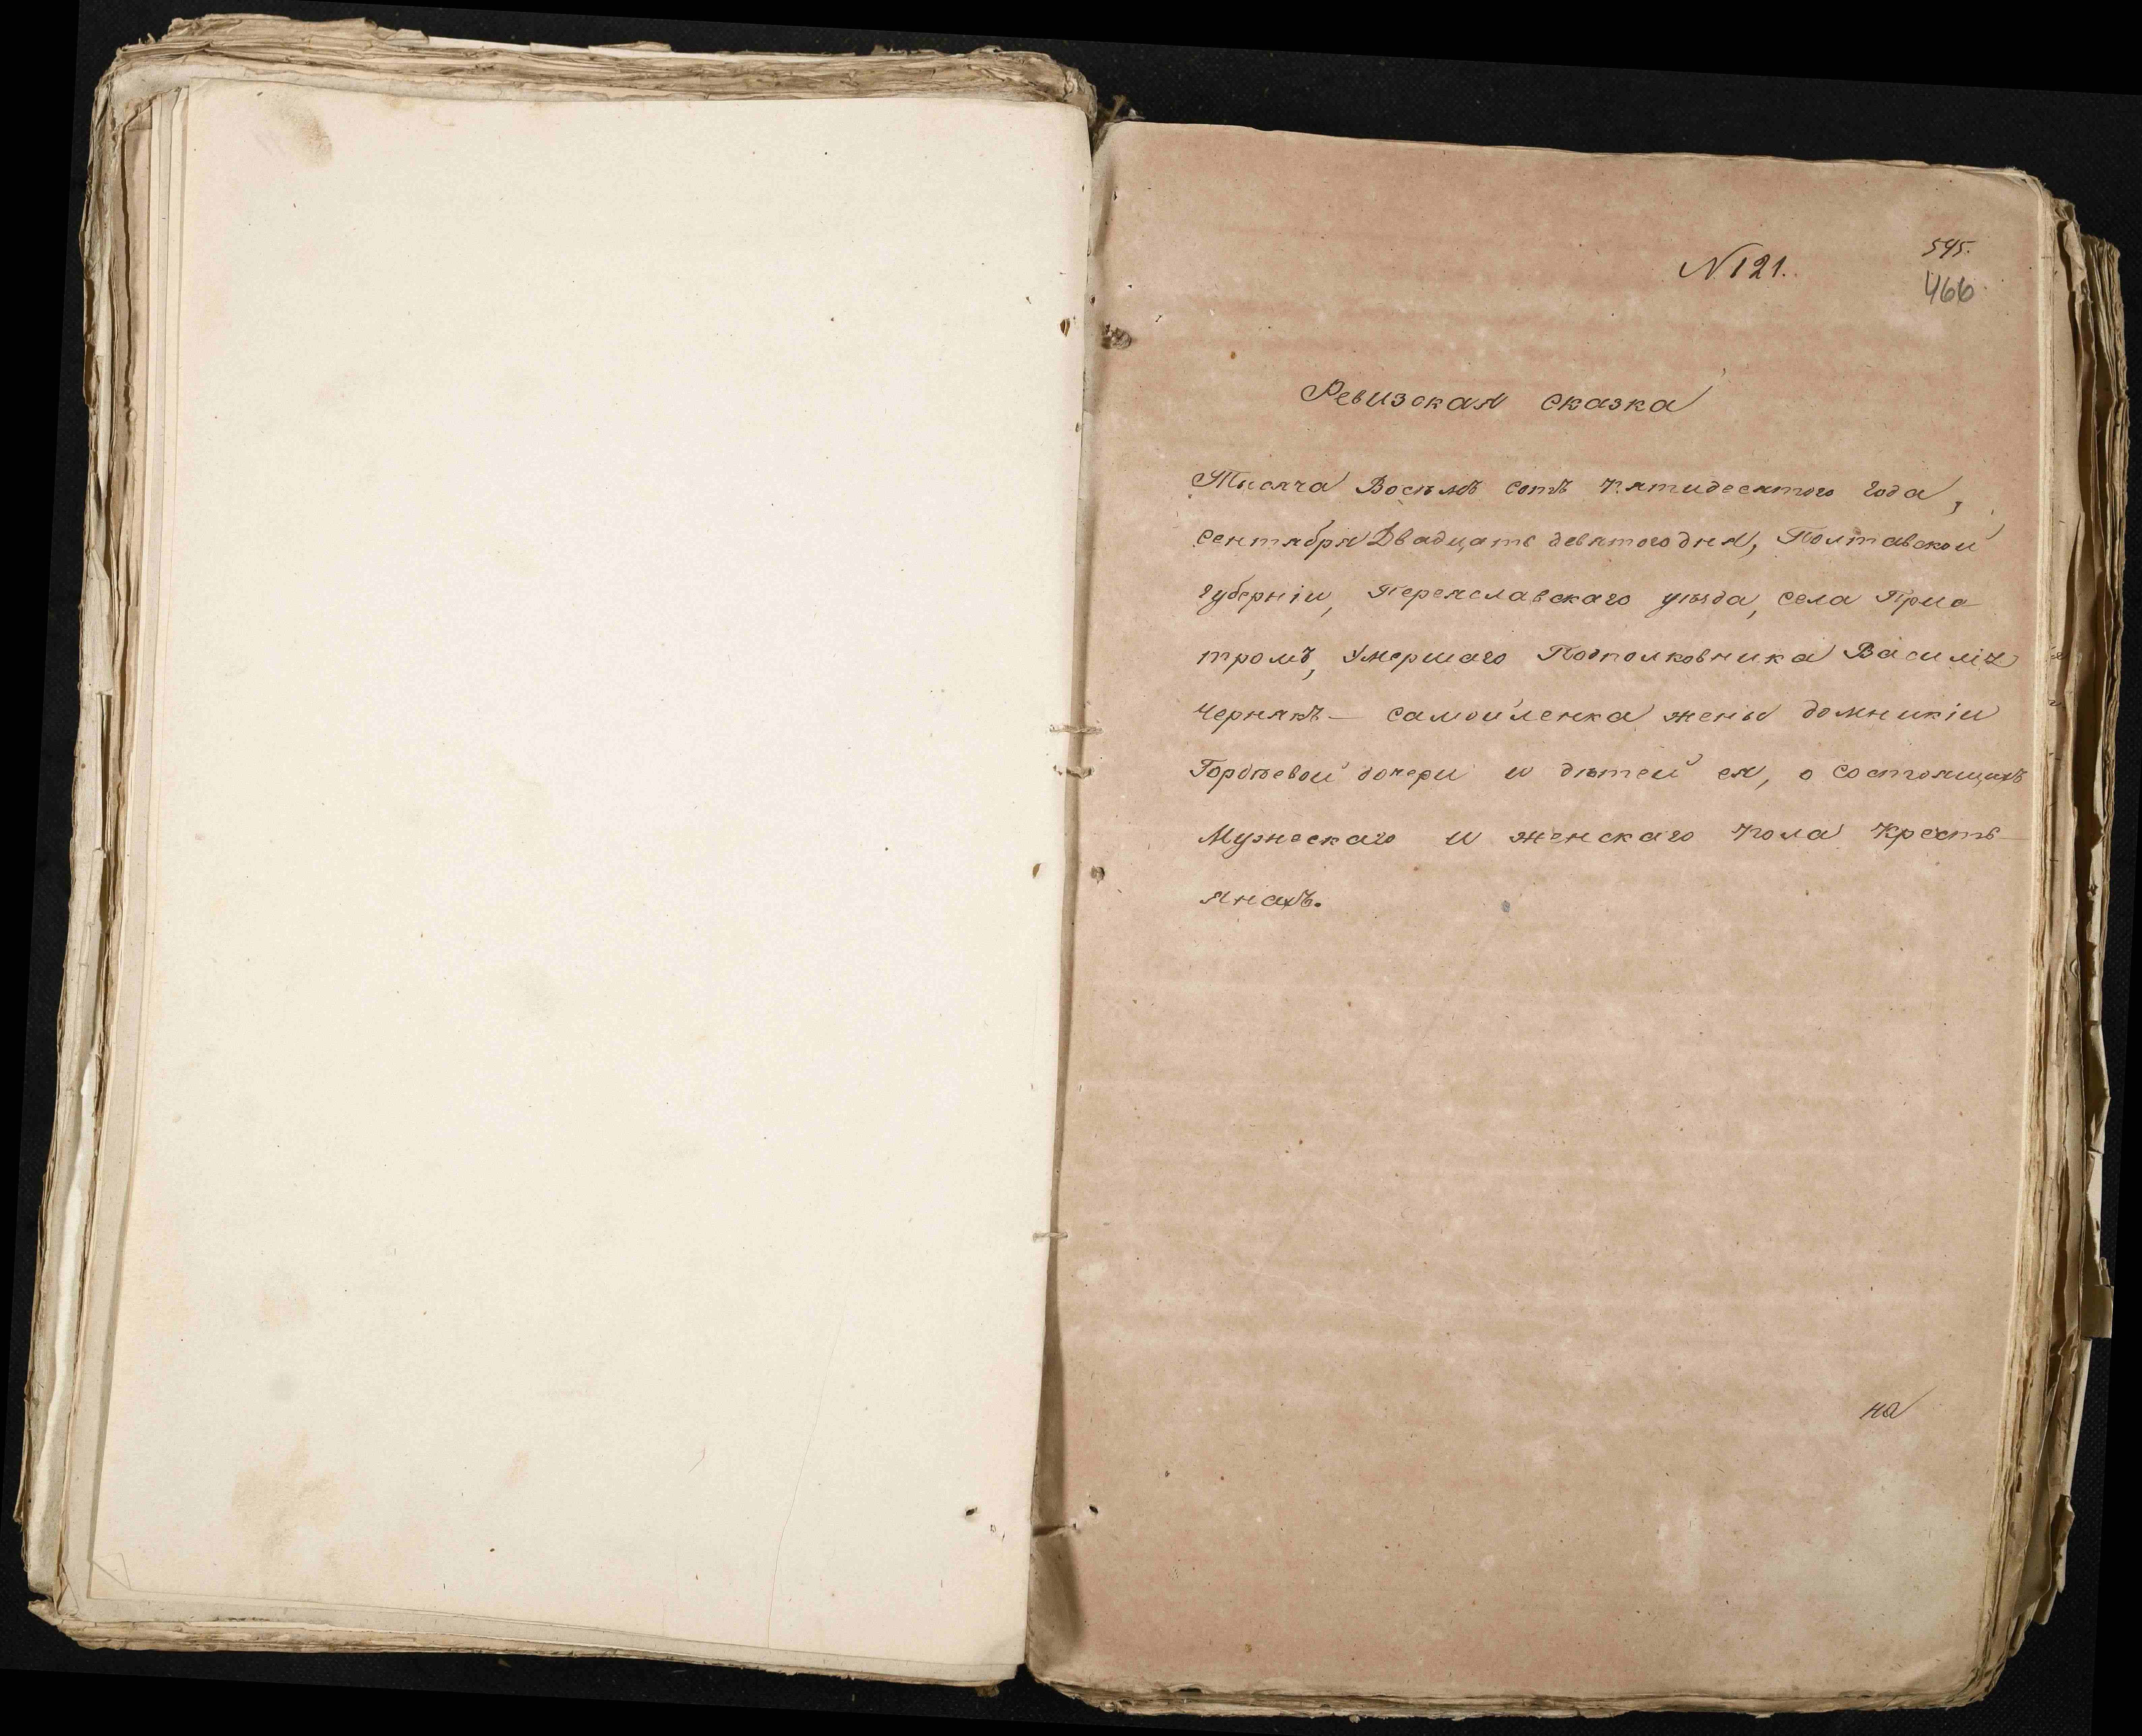 N 121.
545.
466
Ревизская сказка
Тысяча Восѣмь сотъ пятидесятого года,
сентября Двадцать девятого дня, Полтавской
губерніи, Переяславскаго уѣзда, села Приа
тромъ, Умершаго Подполковника Василія
Чернякъ — Самойленка жены Домникіи
Гордѣевой дочери и дѣтей ея, о состоящихъ
Мужескаго и женскаго пола Кресть
янахъ.
на